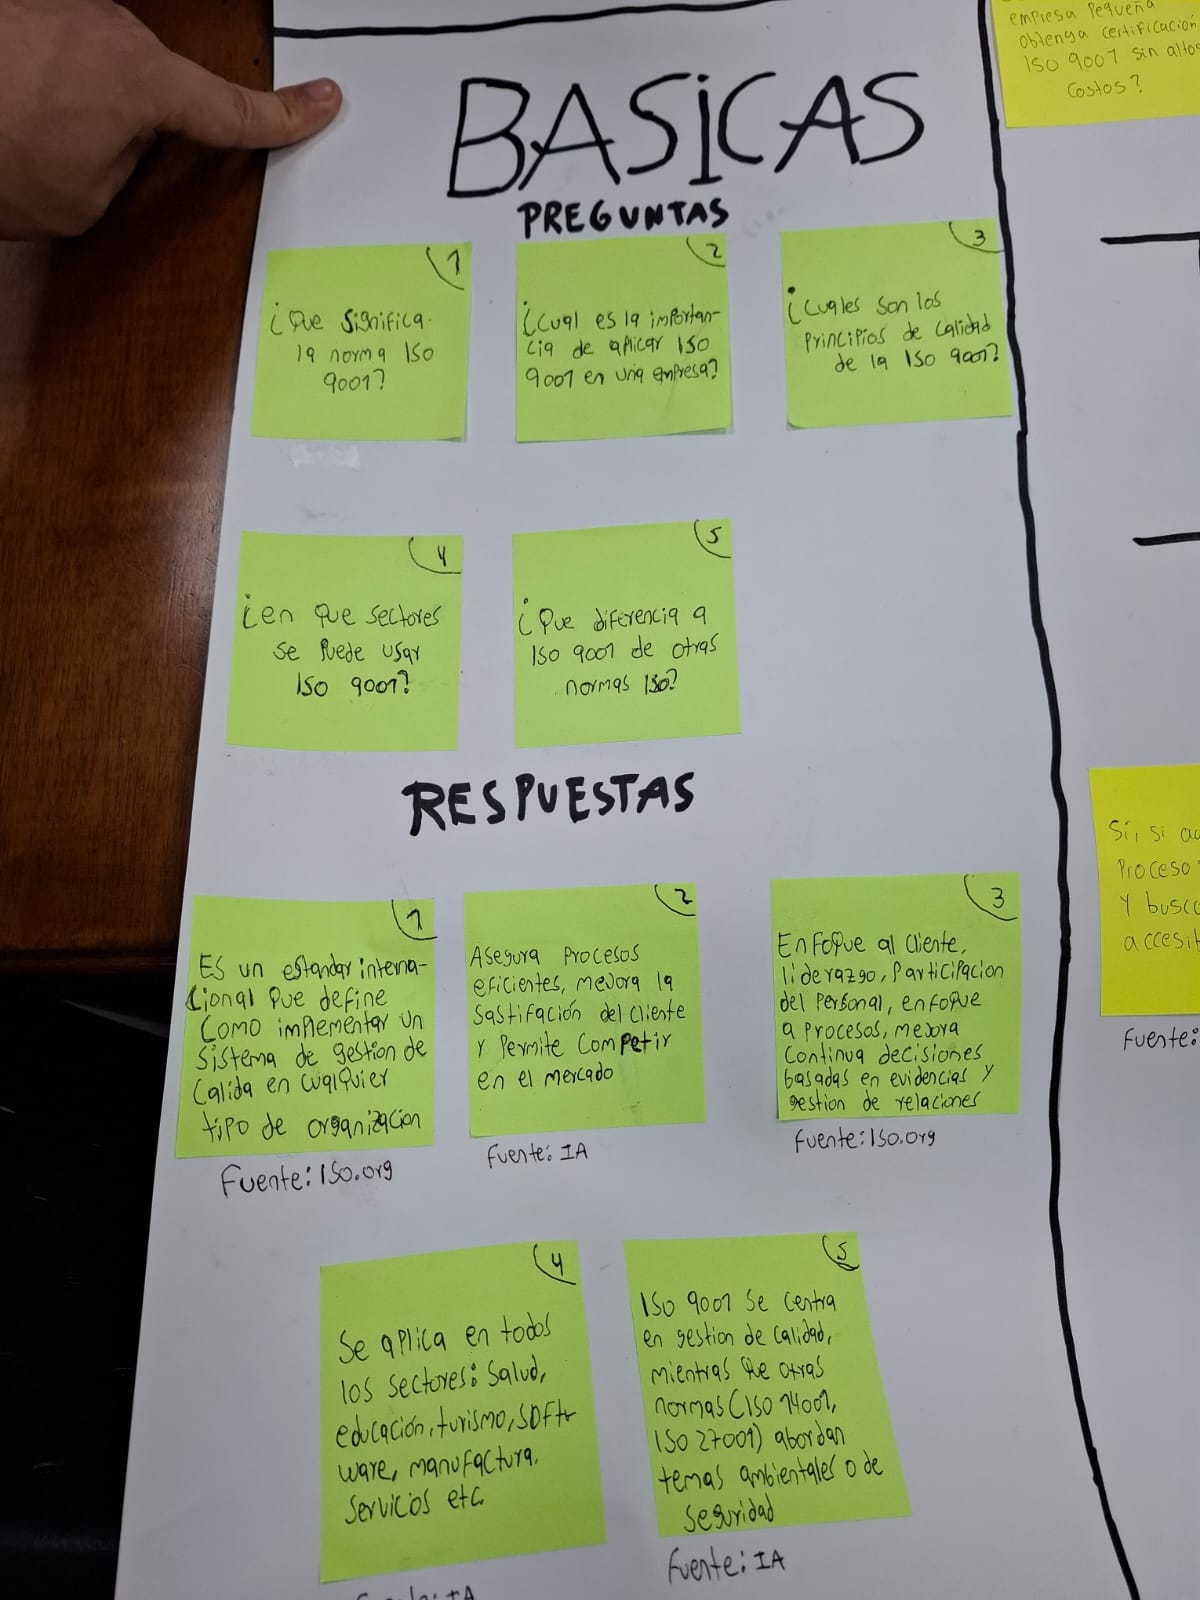 BASiCAS
PREGUNTAS
1
¿Que significa
la norma ISO
9001?
2
¿cual es la importan-
cia de aplicar ISO
9001 en una empresa?
3
¿cuales son los
principios de calidad
de la ISO 9001?
4
¿en que sectores
se puede usar
ISO 9001?
5
¿Que diferencia a
ISO 9001 de otras
normas ISO?
RESPUESTAS
1
Es un estandar interna-
cional que define
como implementar un
sistema de gestion de
calida en cualquier
tipo de organizacion
Fuente: ISO.org
2
Asegura procesos
eficientes, mejora la
sastifación del cliente
y permite competir
en el mercado
Fuente: IA
3
Enfoque al cliente,
liderazgo, participacion
del personal, enfoque
a procesos, mejora
continua decisiones
basadas en evidencias y
gestion de relaciones
Fuente: ISO.org
4
Se aplica en todos
los sectores: salud,
educación, turismo, softw
ware, manufactura,
servicios etc.
Fuente: IA
5
ISO 9001 se centra
en gestion de calidad,
mientras que otras
normas (ISO 14001,
ISO 27001) abordan
temas ambientales o de
seguridad
Fuente: IA
empresa pequeña
obtenga certificación
ISO 9001 sin altos
costos?
Sí, si
Proceso
y busc
accesi
Fuente: